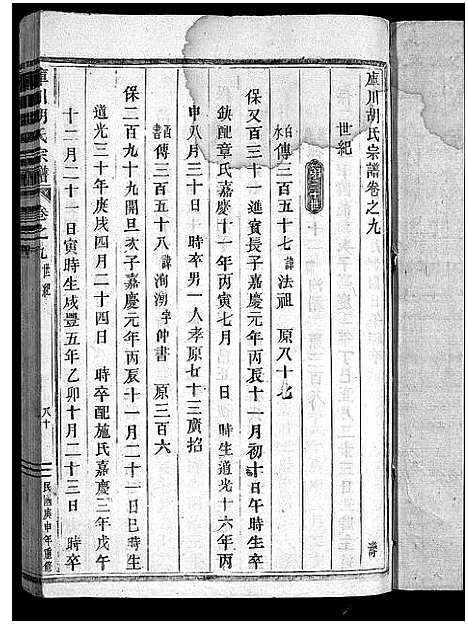 庫川胡氏宗譜卷之九
世紀
白水 傳三百五十七 諱法祖 原八十七
保又百三十一進寶長子嘉慶元年丙辰十一月初十日午時生卒
鈌配章氏嘉慶十一年丙寅七月 日 時生道光十六年丙
申八月三十日 時卒男一人孝原七十三廣招
酉書 傳三百五十八 諱洵潮字仲書 原三百六
保二百九十九開旦次子嘉慶元年丙辰十一月二十一日巳時生
道光三十年庚戌四月二十四日 時卒配施氏嘉慶三年戊午
十二月二十一日寅時生咸豐五年乙卯十月二十三日 時卒
庫川胡氏宗譜 卷之九 世紀 八十 民國庚申年重修